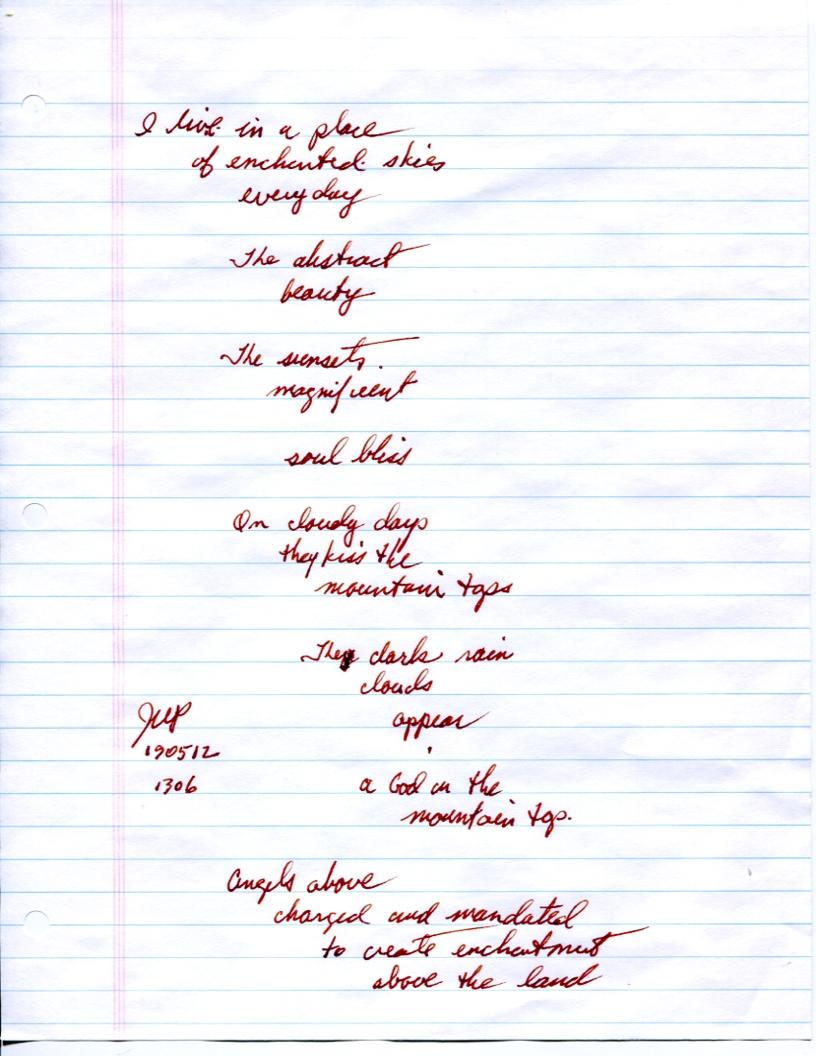 I live in a place
of enchanted skies
everyday
The abstract
beauty
The sunsets.
magnificent
soul bliss
On cloudy days
they kiss the
mountain tops
The dark rain
clouds
appear
JMP
190512
1306
a God on the
mountain top.
Angels above
charged and mandated
to create enchantment
above the land